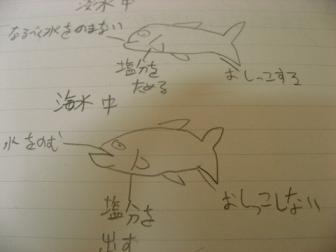 淡水中
なるべく水をのまない
塩分を
ためる
おしっこする
海水中
水をのむ
塩分を
出す
おしっこしない